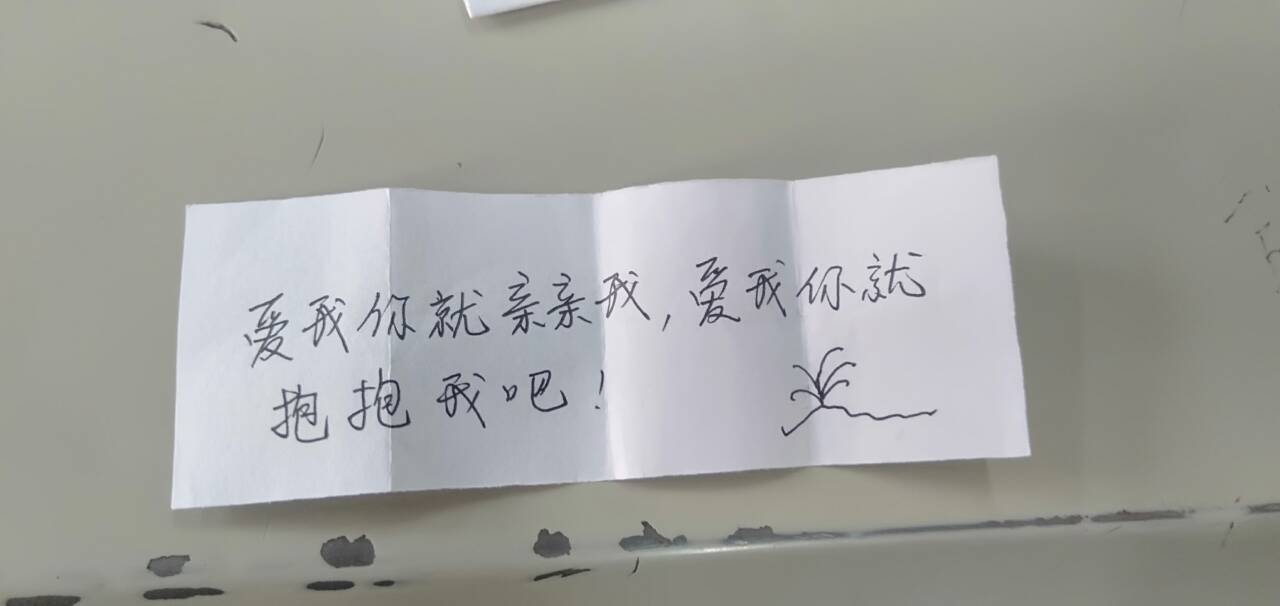 爱我你就亲亲我,爱我你就
抱抱我吧!